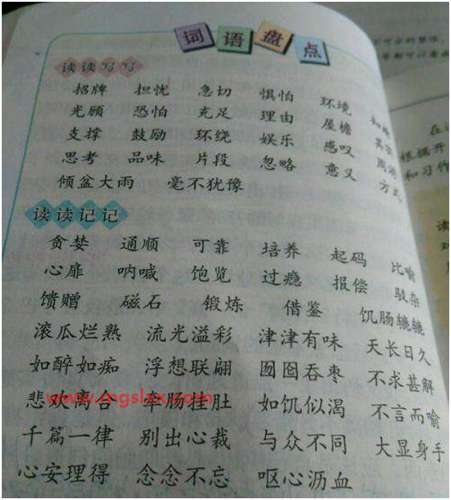 词语盘点
读读写写
招牌 担忧 急切 惧怕 环境
光顾 恐怕 充足 理由 屋檐
支撑 鼓励 环绕 娱乐 感叹
思考 品味 片段 忽略 意义 方式
倾盆大雨 毫不犹豫
读读记记
贪婪 通顺 可靠 培养 起码 比喻
心扉 呐喊 饱览 过瘾 报偿 驳杂
馈赠 磁石 锻炼 借鉴 饥肠辘辘
滚瓜烂熟 流光溢彩 津津有味 天长日久
如醉如痴 浮想联翩 囫囵吞枣 不求甚解
悲欢离合 牵肠挂肚 如饥似渴 不言而喻
千篇一律 别出心裁 与众不同 大显身手
心安理得 念念不忘 呕心沥血